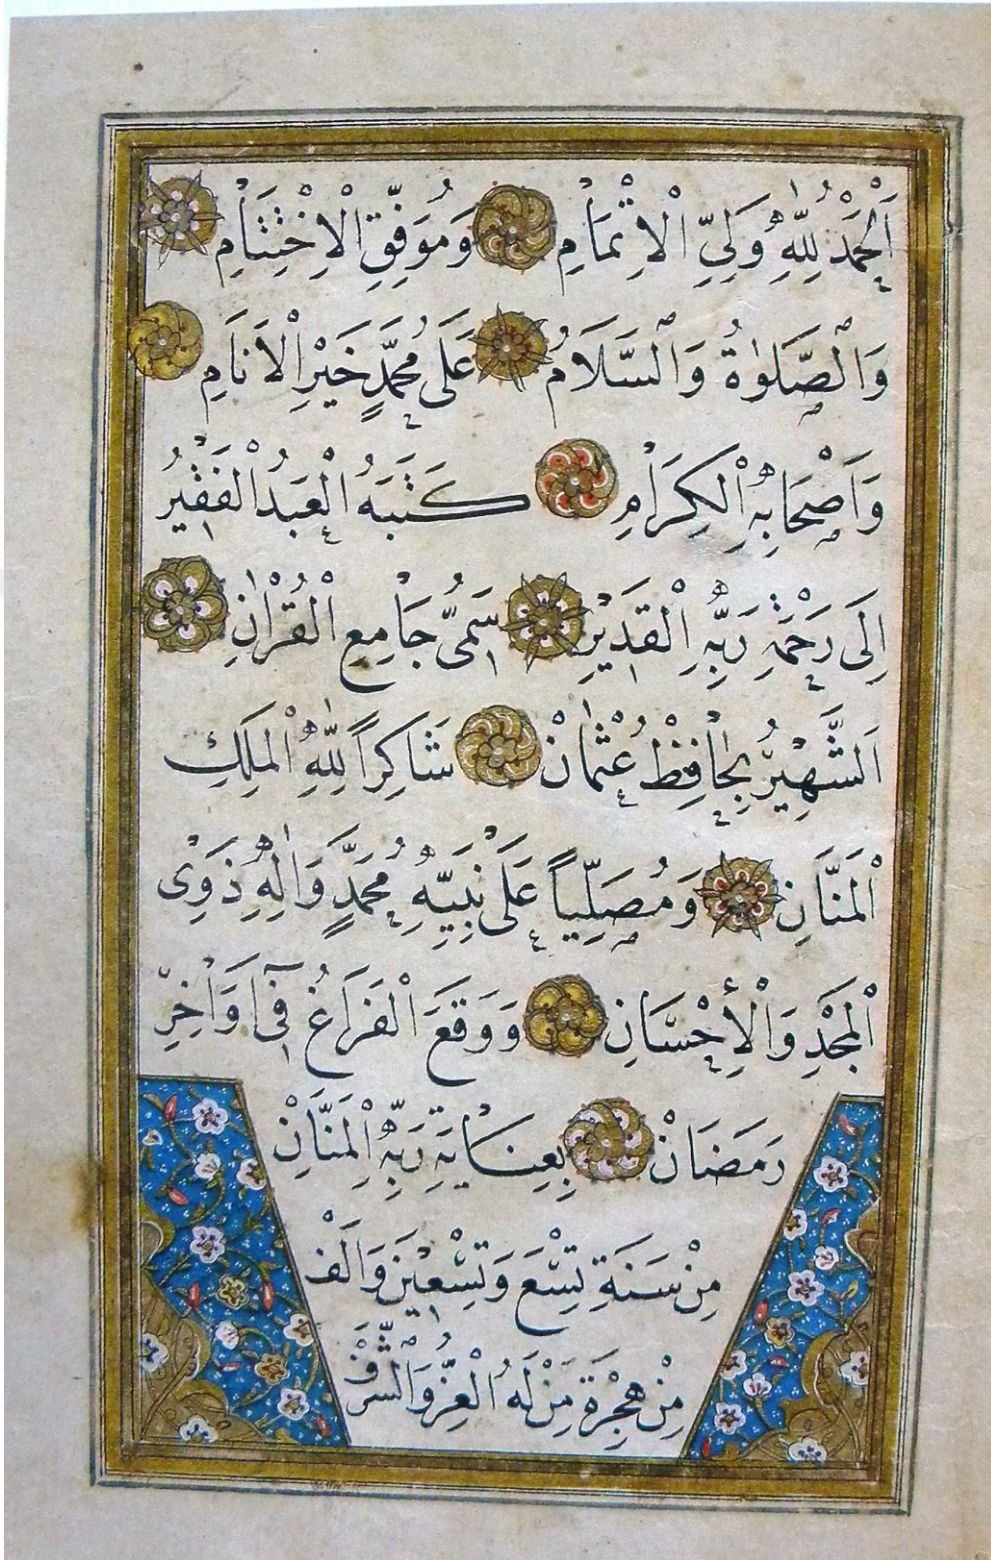 اَلْحَمْدُ لِلّٰهِ وَلِيِّ الْاِتْمَامِ وَمُوَفِّقِ الْاِخْتِتَامِ
وَالصَّلٰوةُ وَالسَّلَامُ عَلَى مُحَمَّدٍ خَيْرِ الْاَنَامِ
وَاَصْحَابِهِ الْكِرَامِ كَتَبَهُ الْعَبْدُ الْفَقٖيرُ
اِلَى رَحْمَةِ رَبِّهِ الْقَدٖيرِ سَمِىُّ جَامِعِ الْقُرْاٰنِ
اَلشَّهٖيرُ بِحَافِظْ عُثْمَانْ شَاكِراً لِلّٰهِ الْمَلِكِ
الْمَنَّانِ وَمُصَلِّياً عَلَى نَبِيِّهِ مُحَمَّدٍ وَاٰلِهِ ذَوِى
الْمَجْدِ وَالْأِحْسَانِ وَوَقَعَ الْفَرَاغُ فٖٓى اَوَاخِرِ
رَمَضَانْ بِعِنَايَةِ رَبِّهِ الْمَنَّانِ
مِنْ سَنَةِ تِسْعَ وَتِسْعٖينَ وَاَلْف
مِنْ هِجْرَةِ مَنْ لَهُ الْعِزُّ وَالشَّرَفْ